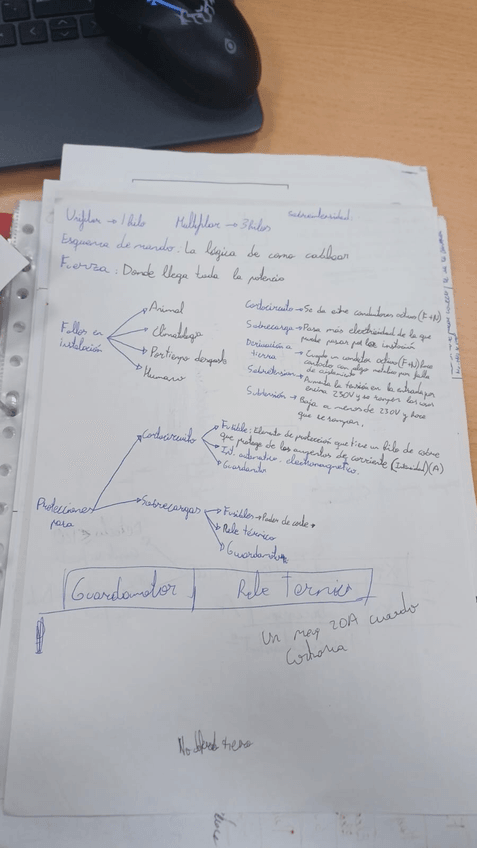 Unifilar → 1 hilo Multifilar → 3 hilos
Esquema de mando: La lógica de como
Fuerza: Donde llega toda la potencia
Fallos en
instalación
Animal
Climatologia
Por tiempo desgaste
Humano
Cortocircuito → Se da entre conductores activos (F+N)
Sobrecarga → Pasa más electricidad de la que
puede pasar por la instalación
Derivación a
tierra
→ Cuando un conductor activo (F+N) hace
contacto con algo metalico por fallo
de aislamiento
Sobretension → Aumenta la tensión en la entrada por
encima 230V y se rompen
Subtensión → Baja a menos de 230V y hace
que se rompan.
Protecciones
para
Cortocircuito
Fusible: Elemento de protección que tiene un hilo de cobre
que protege de los aumentos de corriente (Intensidad) (A)
Int. automatico. electromagnetico.
Guardamotor
Sobrecargas
Fusibles → Poder de corte
Rele térmico
Guardamotor
Guardamotor Rele Termico
Un mag 20A cuando
cortaria